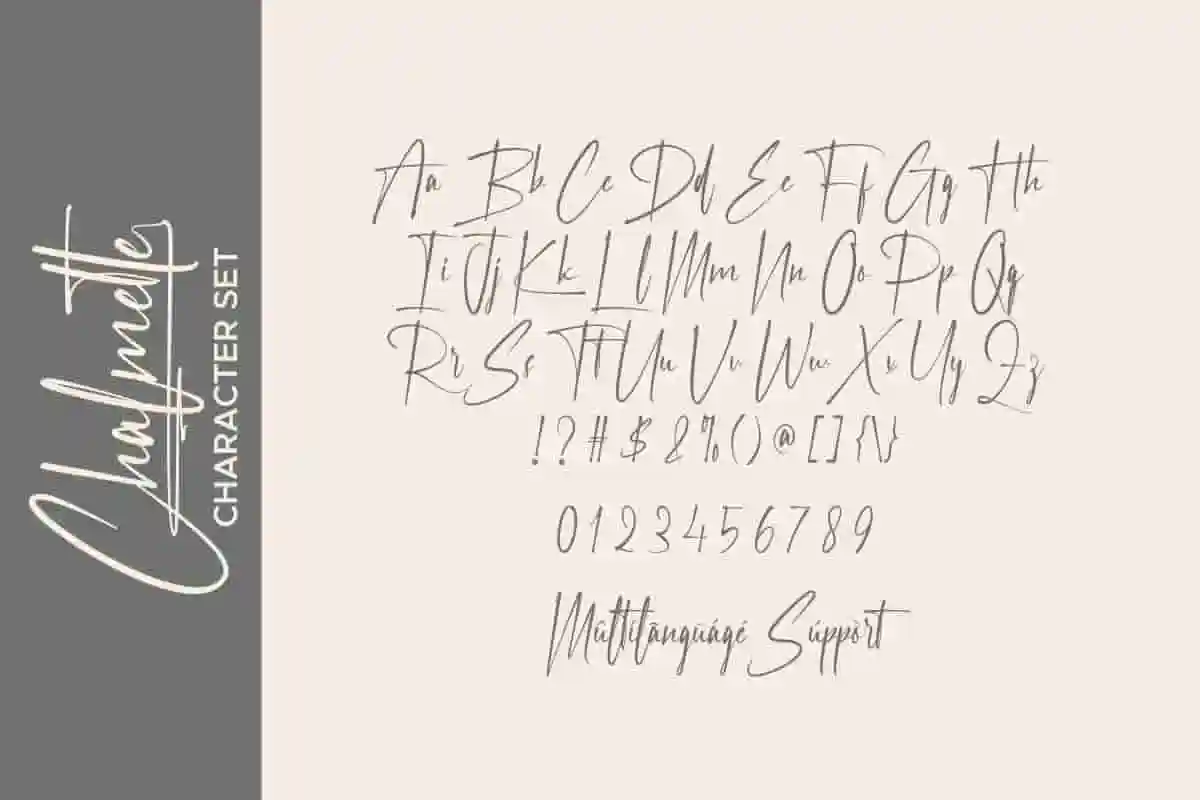 Chalmette
CHARACTER SET
Aa Bb Cc Dd Ee Ff Gg Hh
Ii Jj Kk Ll Mm Nn Oo Pp Qq
Rr Ss Tt Uu Vv Ww Xx Yy Zz
!?#$&%()@[]{\}
0123456789
Mūltilāngūágé Súppòrt